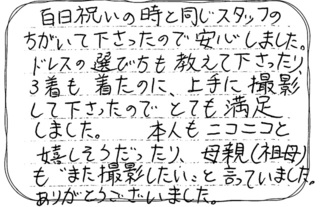 百日祝いの時と同じスタッフの
ちがいて下さったので安心しました。
ドレスの選びちも教えて下さったり、
3着も着たのに、上手に撮影
して下さったのでとても満足
しました。 本人もニコニコと
嬉しそうだったり、母親(祖母)
も"また撮影したい"と言っていました。
ありがとうございました。